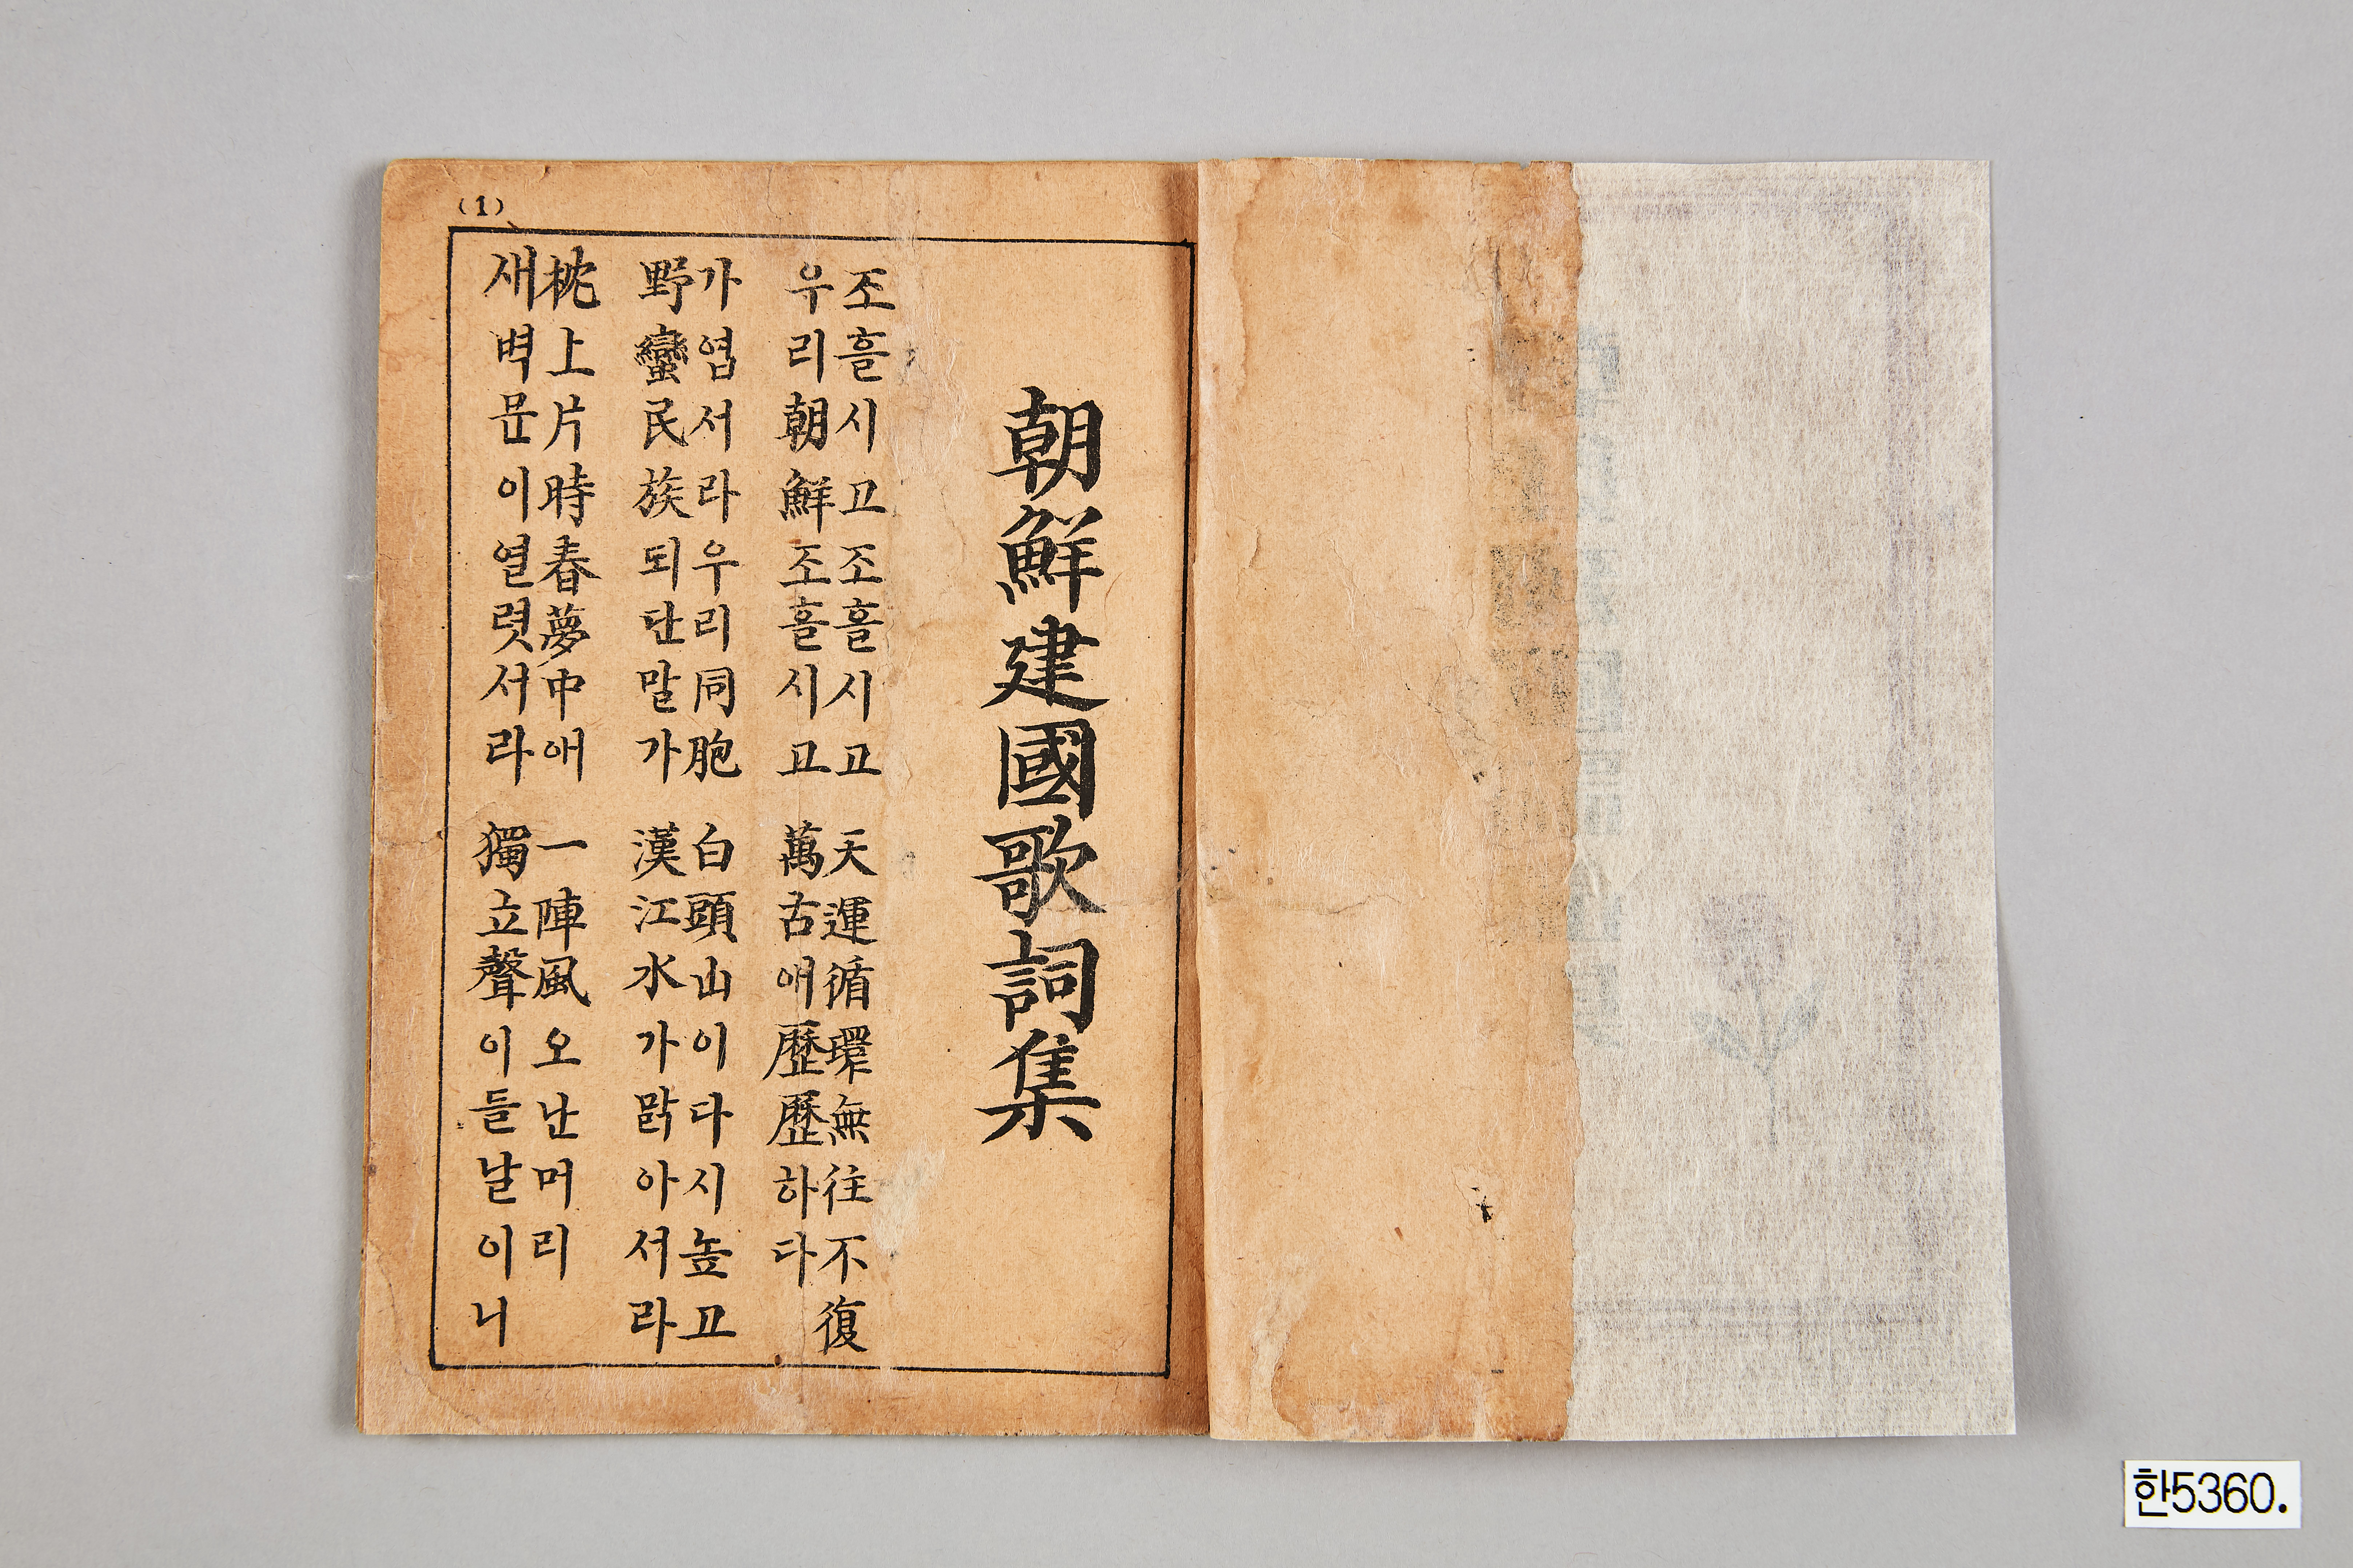 (1)
朝鮮建國歌詞集
조흘시고조흘시고 天運循環無往不復
우리朝鮮조흘시고 萬古애歷歷하다
가엽서라우리同胞 白頭山이다시높고
野蠻民族되단말가 漢江水가맑아서라
枕上片時春夢中애 一陣風오난머리
새벽문이열렷서라 獨立聲이들날이니
한5360.